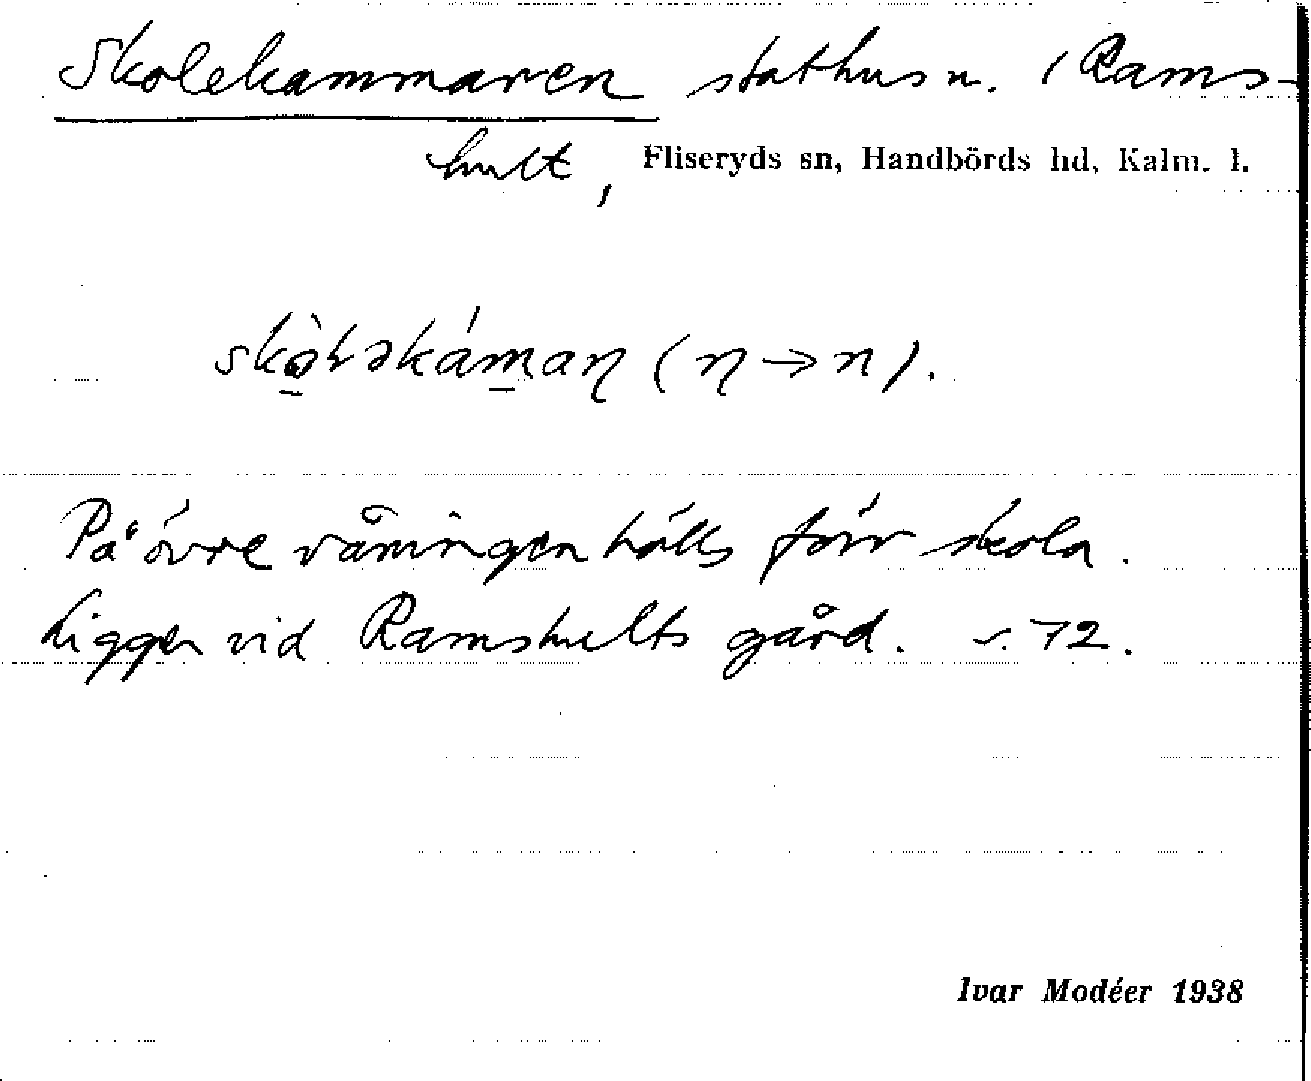 Skolekammaren stathus u. / Rams-
hult, Fliseryds sn, Handbörds hd, Kalm. l.
skò̠ləkám̠aɳ (ɳ → n).
På övre våningen hölls förr skola.
Ligger vid Ramshults gård. s. 72.
Ivar Modéer 1938